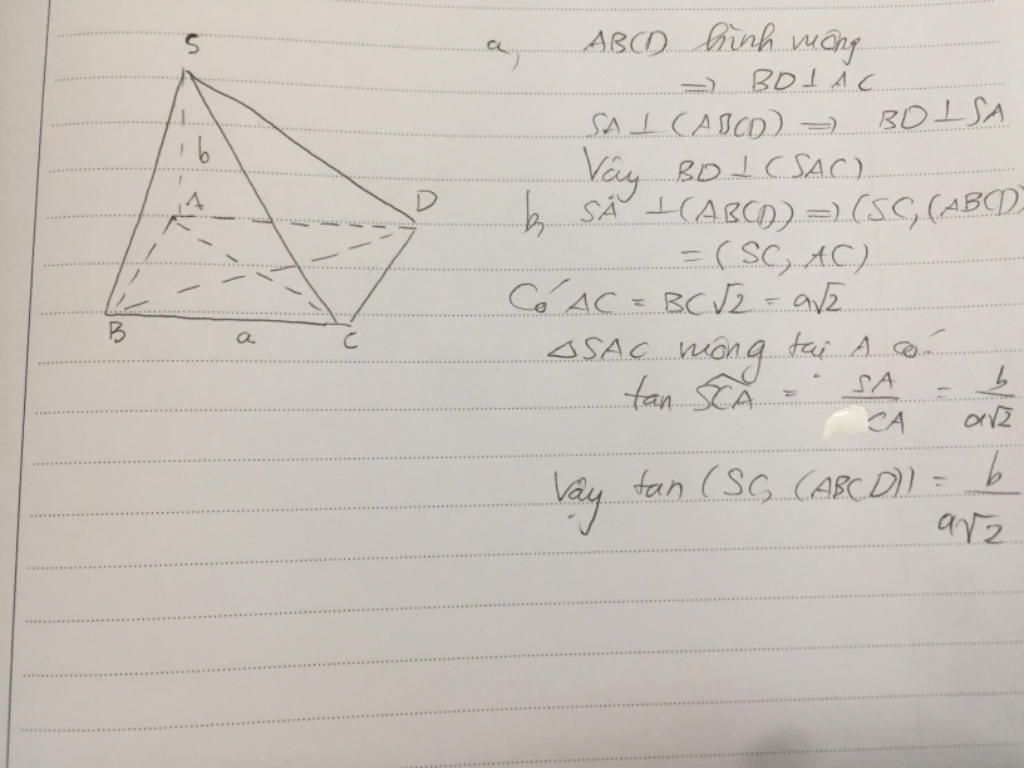 S
b
A
D
B
a
C
a, ABCD hình vuông
=> BD ⊥ AC
SA ⊥ (ABCD) => BD ⊥ SA
Vây BD ⊥ (SAC)
b, SA ⊥ (ABCD) => (SC, (ABCD)
= (SC, AC)
Có AC = BC√2 = a√2
△SAC vuông tại A có
tan SCA = SA/CA = b/a√2
Vậy tan (SC, (ABCD)) = b/a√2